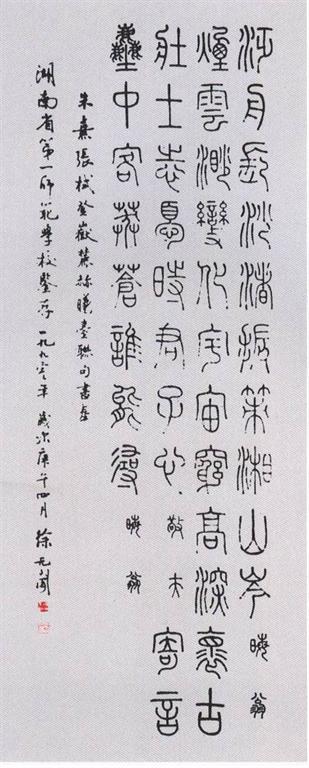 泛舟長沙渚振策湘山岑 晦翁
煙雲渺變化宇宙窮高深懷古
壯士志憂時君子心 敬夫 寄言
塵中客莽蒼誰能尋 晦翁
朱熹張栻登嶽麓赫曦臺聯句書奉
湖南省第一師範學校鑒存 一九九〇年歲次庚午四月 徐无聞